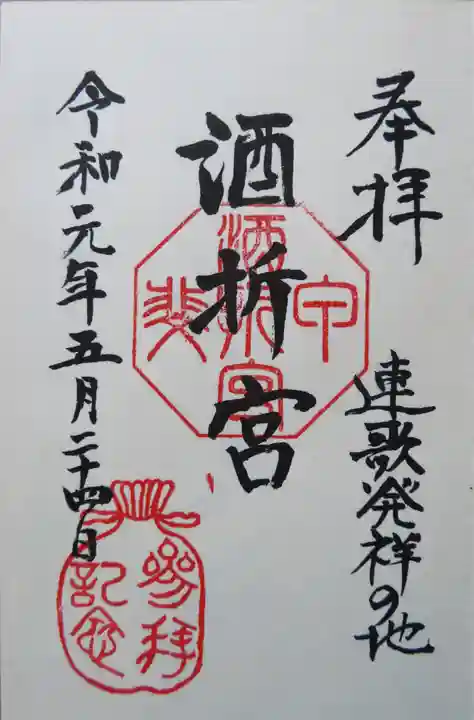 奉拝
連歌発祥の地
酒折宮
令和元年五月二十四日
酒折宮
参拝
記念